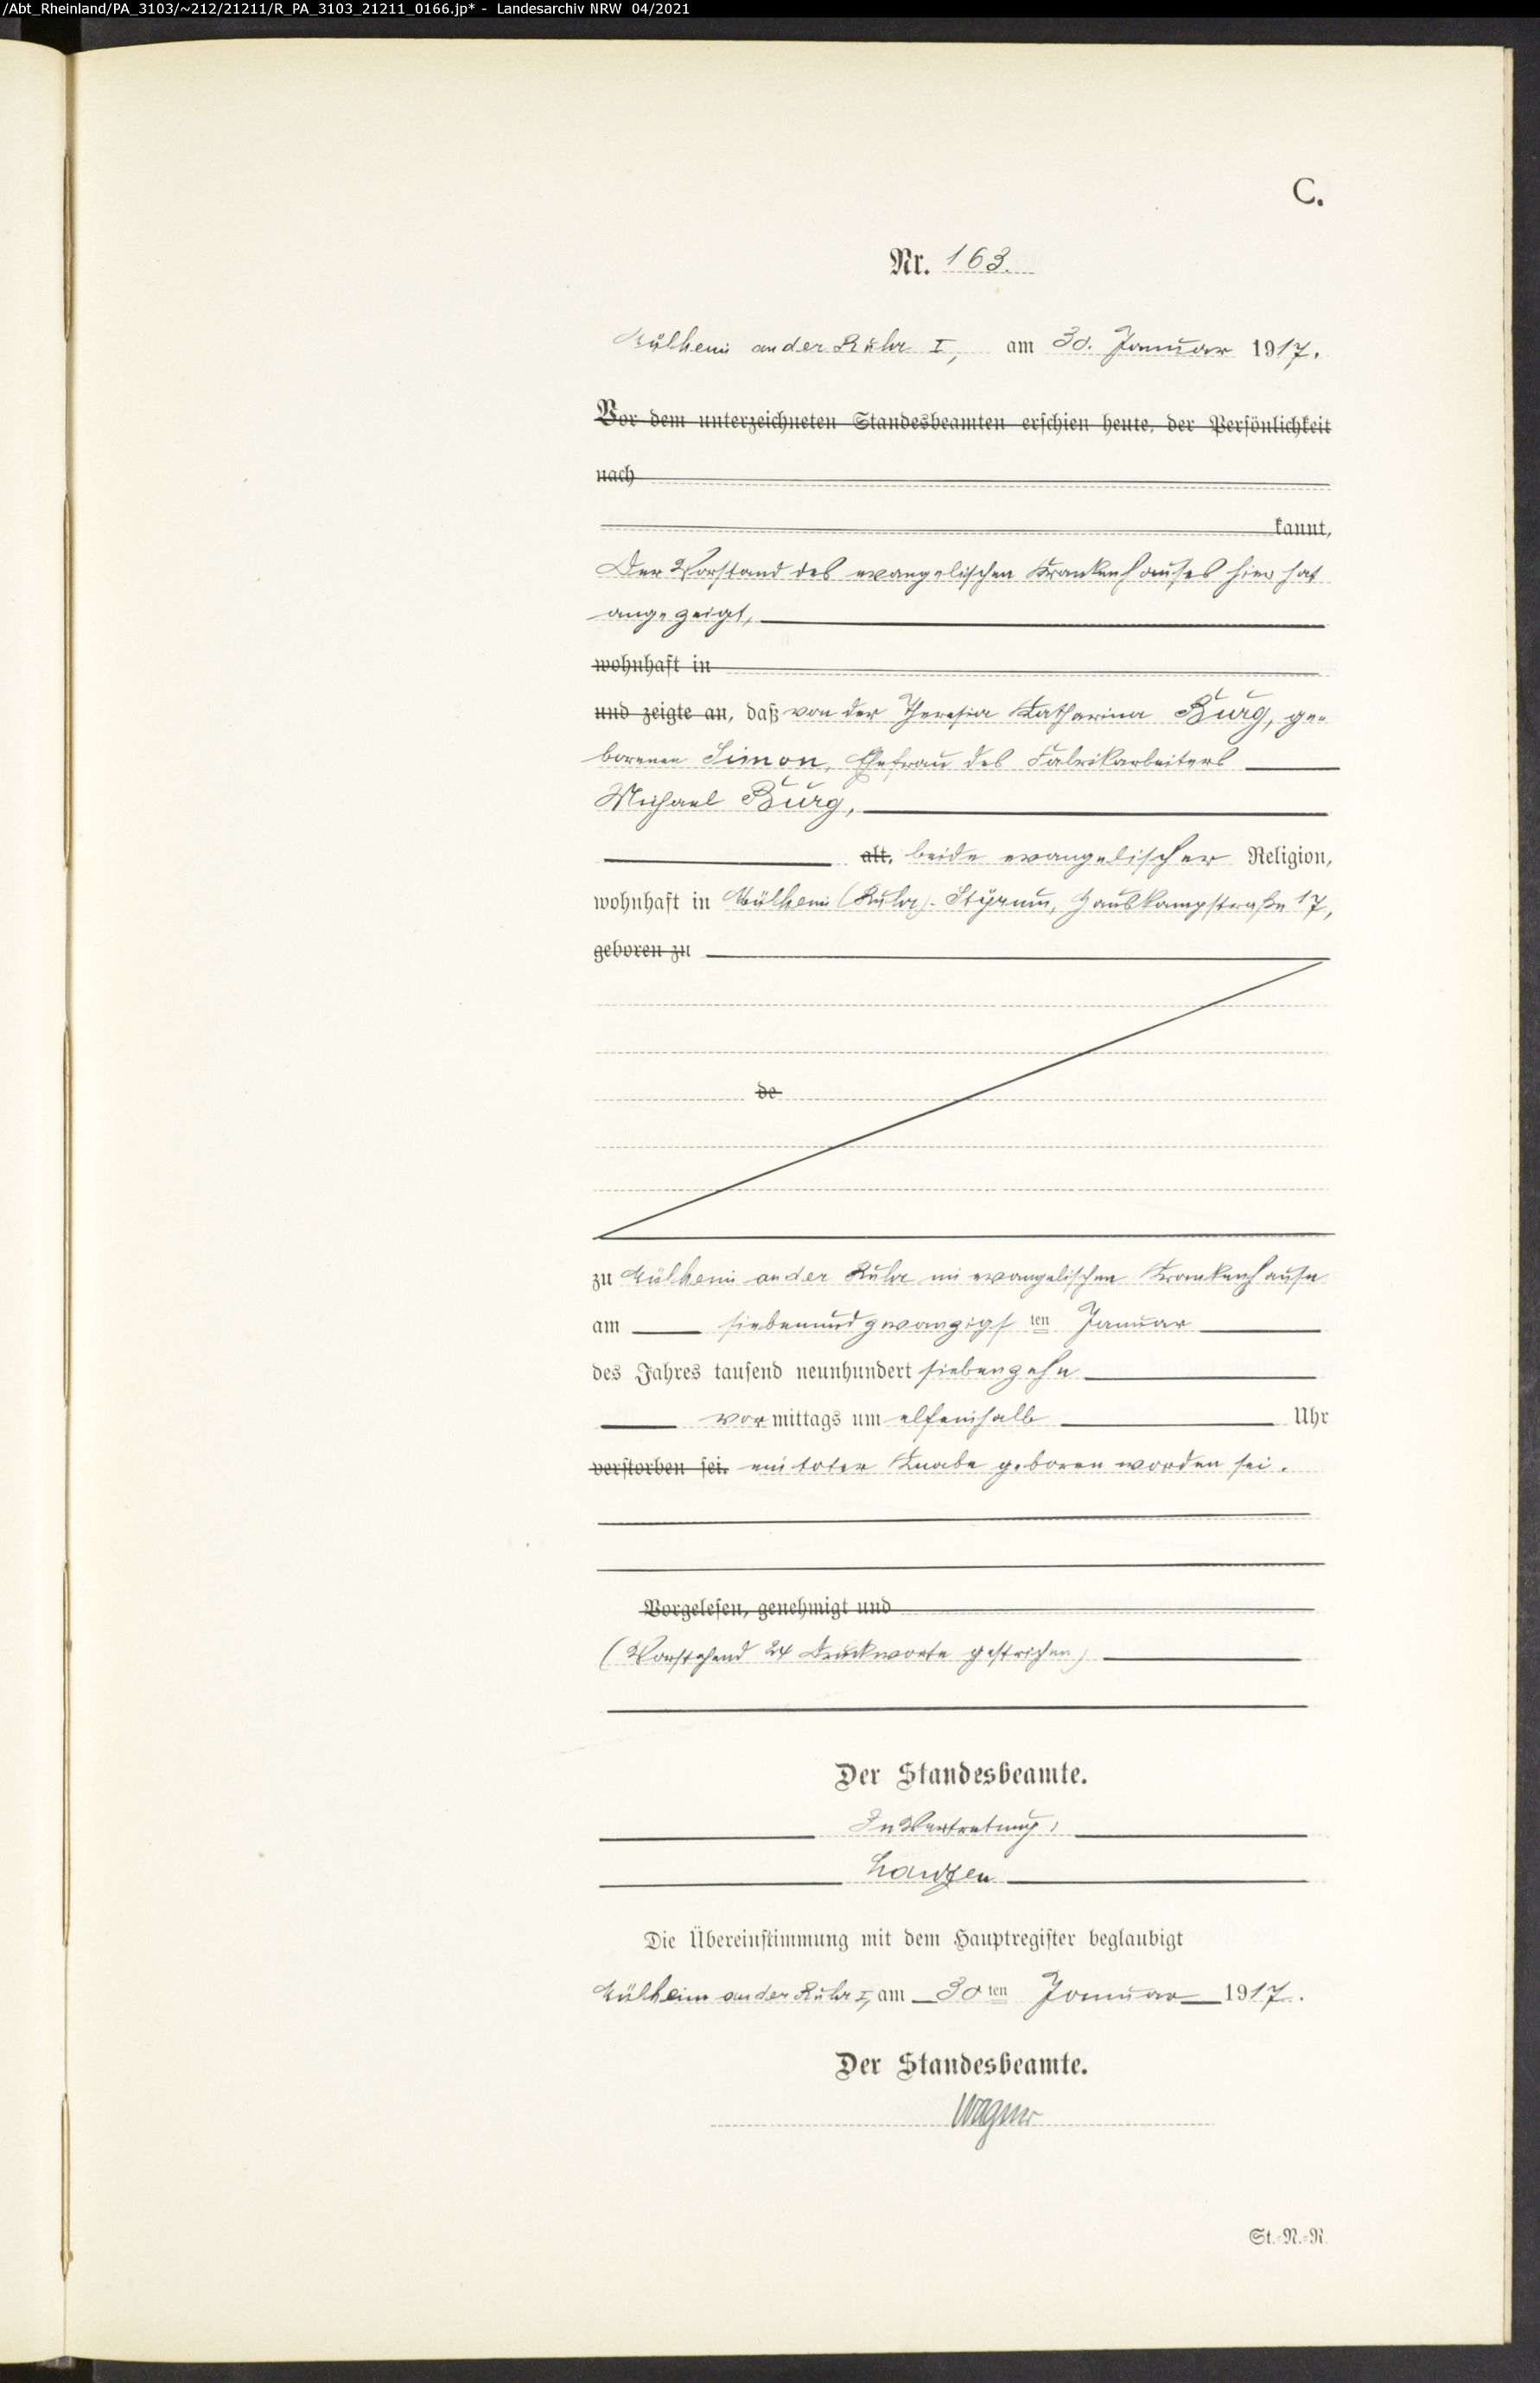 /Abt_Rheinland/PA_3103/~212/21211/R_PA_3103_21211_0166.jp* - Landesarchiv NRW 04/2021
C.
Nr. 163.
Mülheim an der Ruhr I, am 30. Januar 1917.
Vor dem unterzeichneten Standesbeamten erschien heute, der Persönlichkeit
nach
kannt,
Der Vorstand des evangelischen Krankenhauses hier hat
angezeigt,
wohnhaft in
und zeigte an, daß von der Theresia Katharina Burg, ge-
borenen Simon, Ehefrau des Fabrikarbeiters
Michael Burg,
alt, beide evangelischer Religion,
wohnhaft in Mülheim (Ruhr)-Styrum, Hauskampstraße 17,
geboren zu
de
zu Mülheim an der Ruhr im evangelischen Krankenhause
am siebenundzwanzigsten Januar
des Jahres tausend neunhundert siebenzehn
vormittags um elfeinhalb Uhr
verstorben sei. ein toter Knabe geboren worden sei.
Vorgelesen, genehmigt und
(Vorstehend 24 Druckworte gestrichen)
Der Standesbeamte.
In Vertretung:
Die Übereinstimmung mit dem Hauptregister beglaubigt
Mülheim an der Ruhr I, am 30ten Januar 1917.
Der Standesbeamte.
Wagner
St.-N.-R.